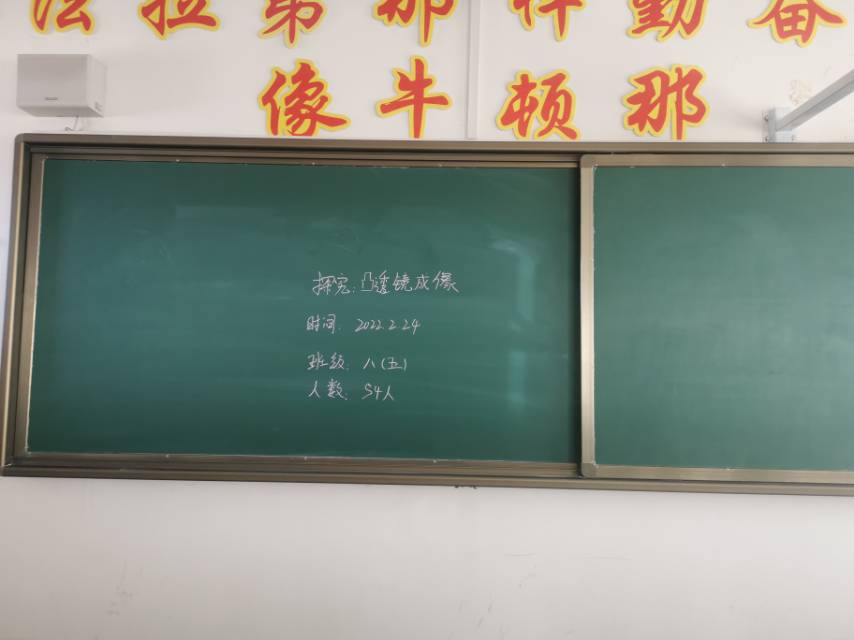 法拉第那样勤奋
像牛顿那
探究:凸透镜成像
时间:2022.2.24
班级:八(五)
人数:54人